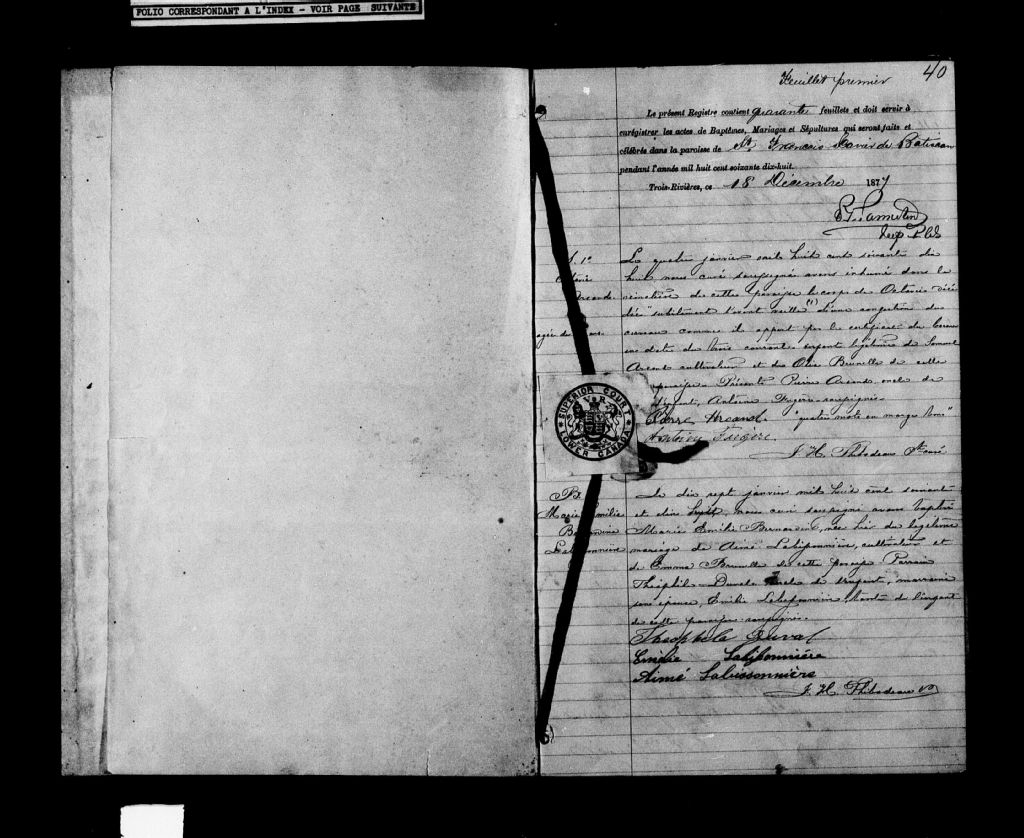 FOLIO CORRESPONDANT A L'INDEX - VOIR PAGE SUIVANTE
40
Feuillet premier
Le présent Registre contient quarante feuillets et doit servir à
enrégistrer les actes de Baptêmes, Mariages et Sépultures qui seront faits et
célébrés dans la paroisse de St. François Xavier de Batiscan
pendant l'année mil huit cent soixante dix-huit.
Trois-Rivières, ce 18 Décembre 1877
Dep. P.C.S
S. 1e
Arcand
Le quatre janvier mile huit cent soixante dix
huit nous curé soussigné avons inhumé dans le
cimetière de cette paroisse le corps de Octavie décé
dée subitement l'avant veille (1) d'une congestion du
cerveau comme il appert par le certificat du
en date du trois courant enfant légitime de
Arcand cultivateur et de Brunelle de cette
paroisse. Présents Pierre Arcand oncle de
Antoine Fugère soussignés.
Pierre Arcand "quatre mots en marge bons"
Antoine Fugère
J. H. Thibodeau Ptre curé
SUPERIOR COURT
V R
LOWER CANADA
B.
Marie Emilie
Labissonnière
Le dix sept janvier mil huit cent soixante
et dix huit, nous curé soussigné avons baptisé
Marie Emilie Bernardine, née hier du légitime
mariage de Aimé Labissonnière, cultivateur et
de Emma Brunelle de cette paroisse Parrain
Théophile Duval oncle de l'enfant, marraine
son épouse, Emilie Labissonnière, tante de l'enfant
de cette paroisse soussignés.
Théophile Duval
Emilie Labissonnière
Aimé Labissonnière
J. H. Thibodeau